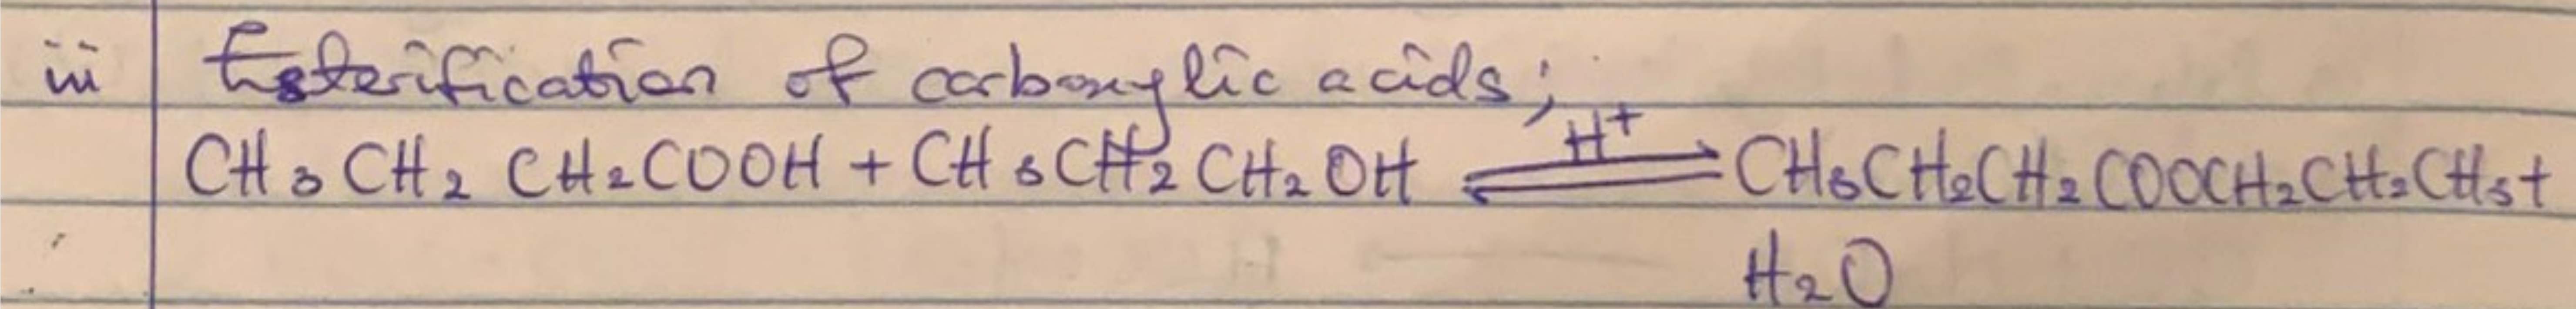 iii Esterification of carboxylic acids;
CH3CH2CH2COOH + CH3CH2CH2OH ⇌ H+ CH3CH2CH2COOCH2CH2CH3+
H2O